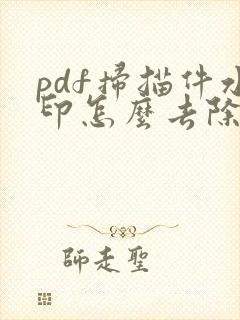 pdf掃描件水
印怎麼去除
師走聖